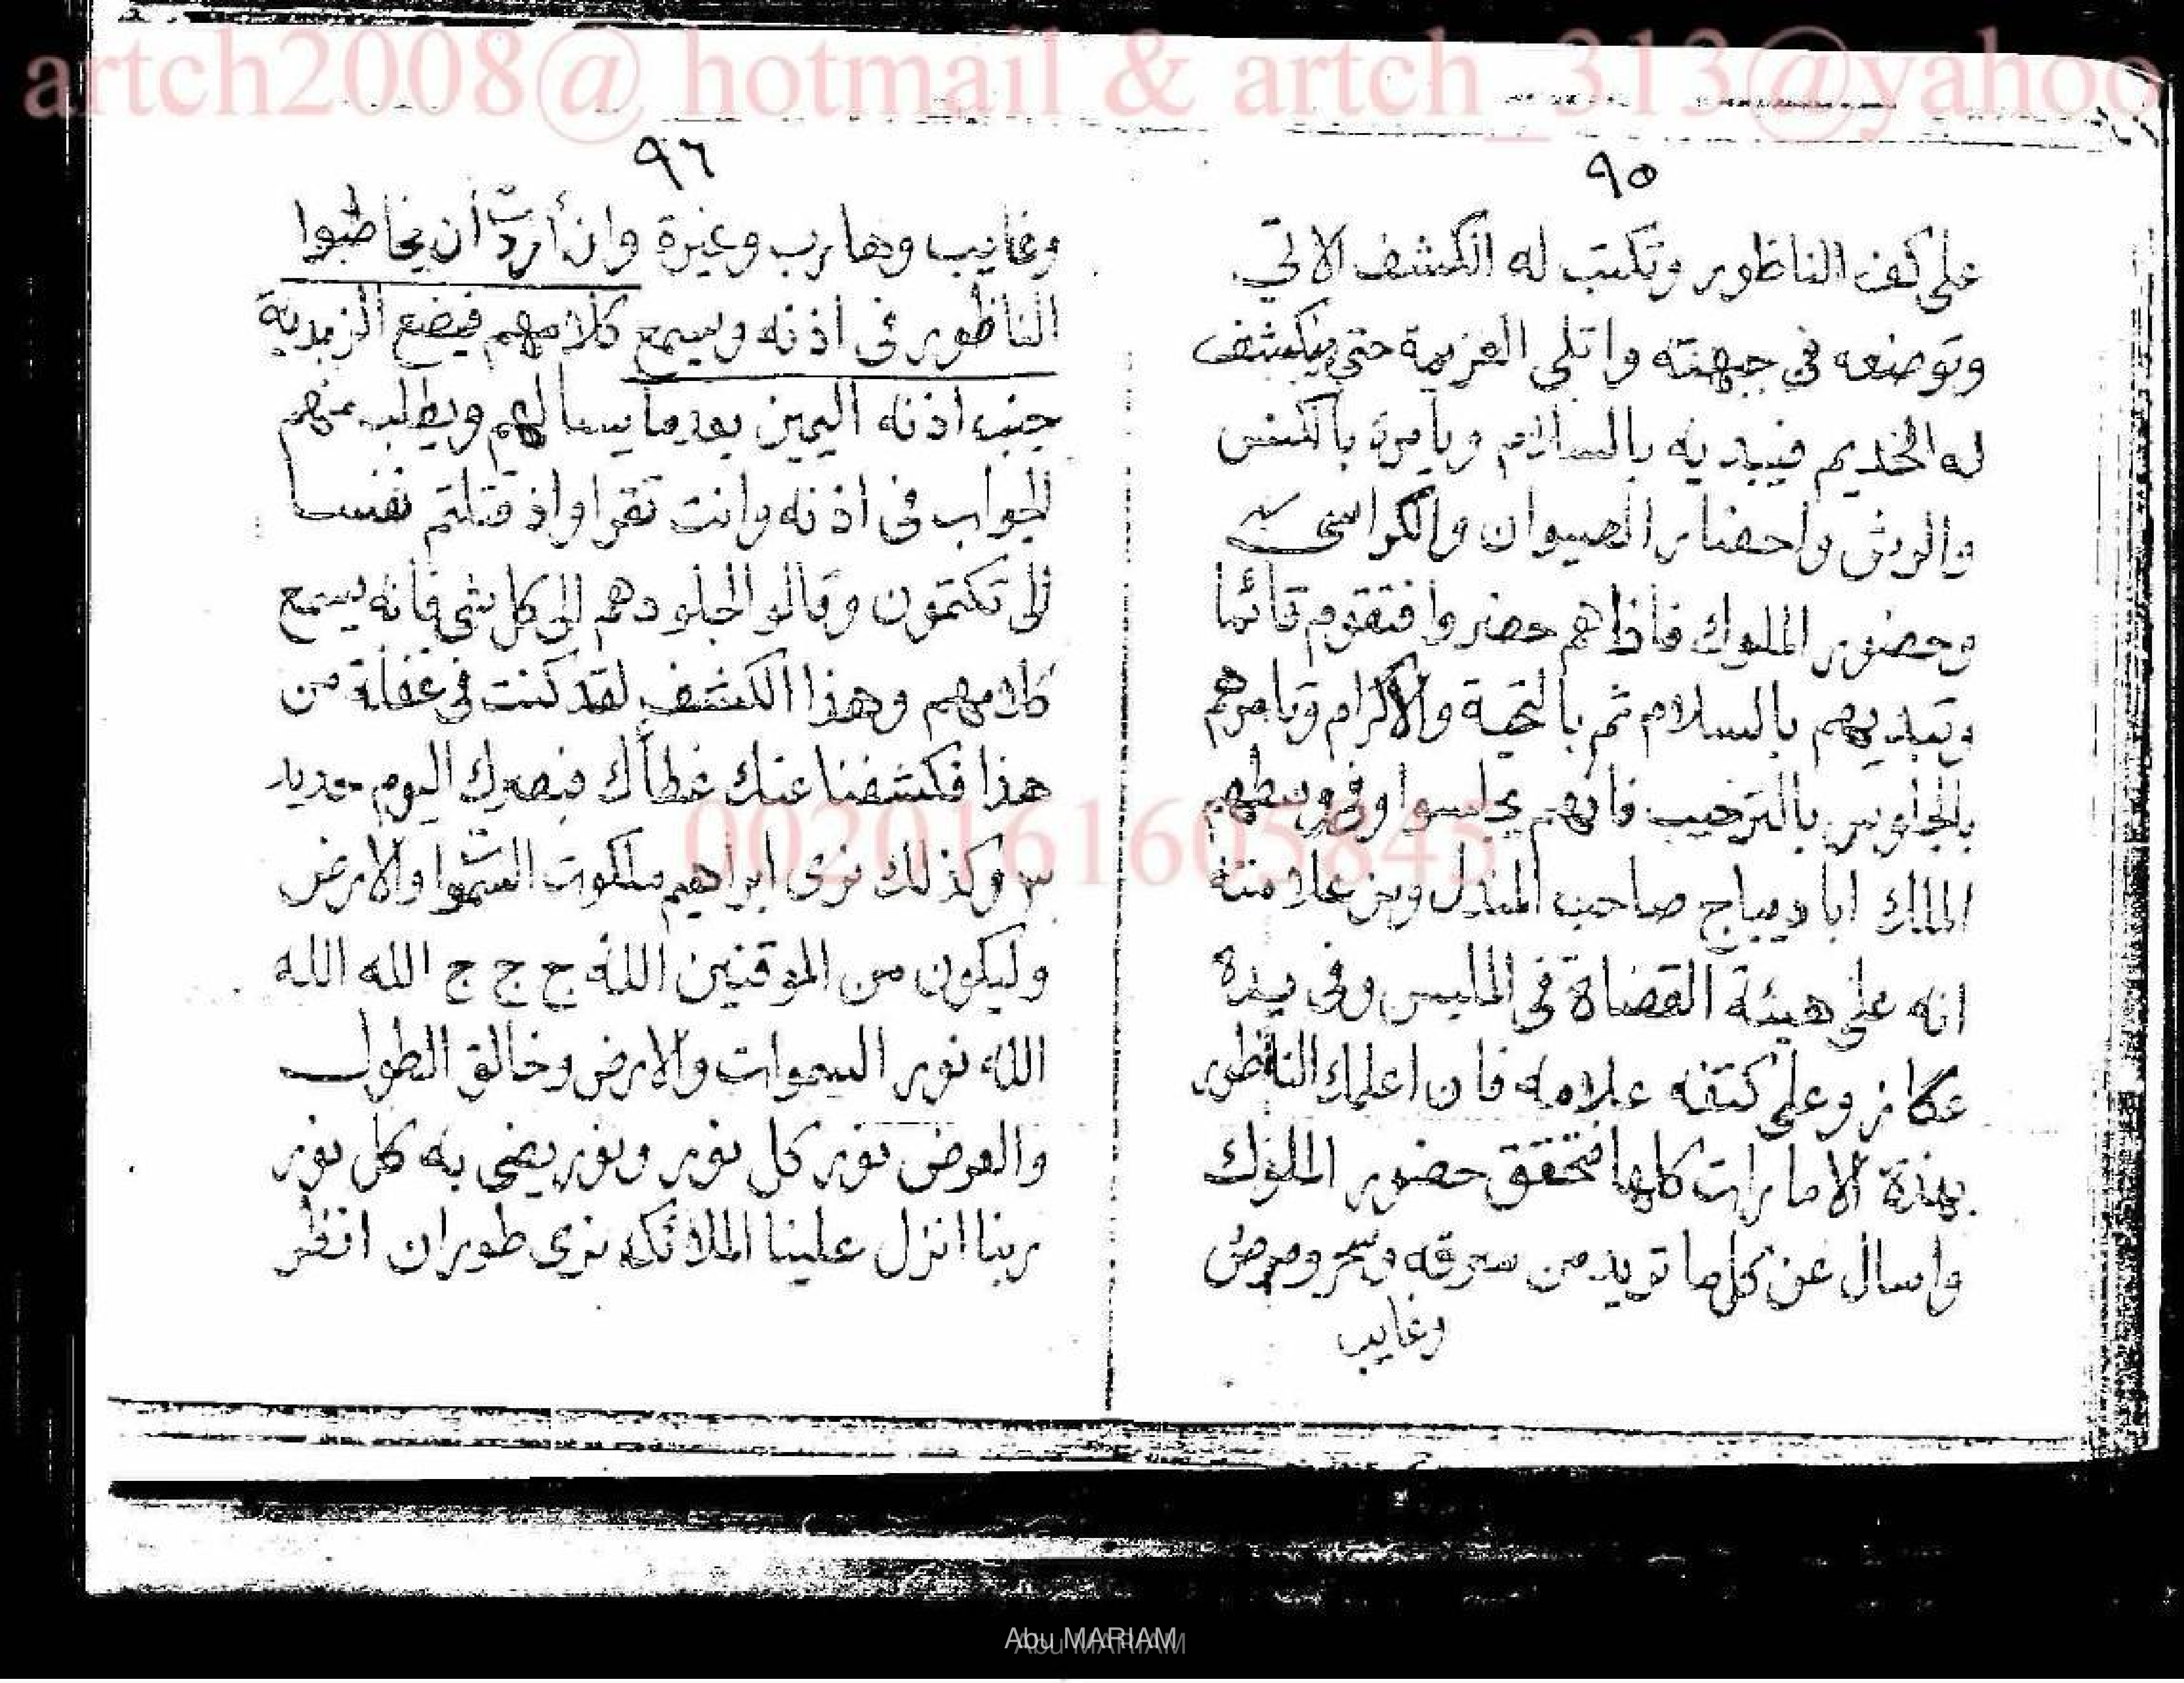 artch2008@ hotmail & artch_313@yahoo
٩٥
على كف الناظور وتكتب له الكشف الاتي
وتوضعه في جبهته واتلي العزيمة حتي ينكشف
له الخديم فيبديه بالسلام ويأمرة بالكنس
والرش واحضار الصيوان والكراسى
وحضور الملوك فاذا هم حضروا فتقوم قائما
وتبديهم بالسلام ثم بالتحية والاكرام وتامرهم
بالجلوس بالترحيب فانهم يجلسوا وفى وسطهم
الملك ابا ديباج صاحب المندل ومن علامته
انه على هيئة القضاة فى الملبس وفى يدة
عكاز وعلى كتفه علامه فان اعلمك الناظور
بهذة الامارات كلها فتحقق حضور الملوك
واسال عن كل ما تريد من سرقه وسحر ومرض
وغايب
٩٦
وغايب وهارب وغيرة وان أردت أن يخاطبوا
الناظور فى اذنه ويسمع كلامهم فيضع الزبدية
جنب اذنه اليمين بعد ما يسالهم ويطلب منهم
الجواب فى اذنه وانت تقرا واذ قتلتم نفسا
الى تكتمون وقالوا لجلودهم الى كل شى فانه يسمع
كلامهم وهذا الكشف لقد كنت فى غفلة من
هذا فكشفنا عنك غطاك فبصرك اليوم حديد
وكذلك نرى ابراهيم ملكوت السموات والارض
وليكون من الموقنين الله ج ج ج الله الله
الله نور السموات والارض وخالق الطول
والعرض نور كل نور ونور يضى به كل نور
ربنا انزل علينا الملائكه نرى طوران انظر
0020161605845
Abu MARIAM